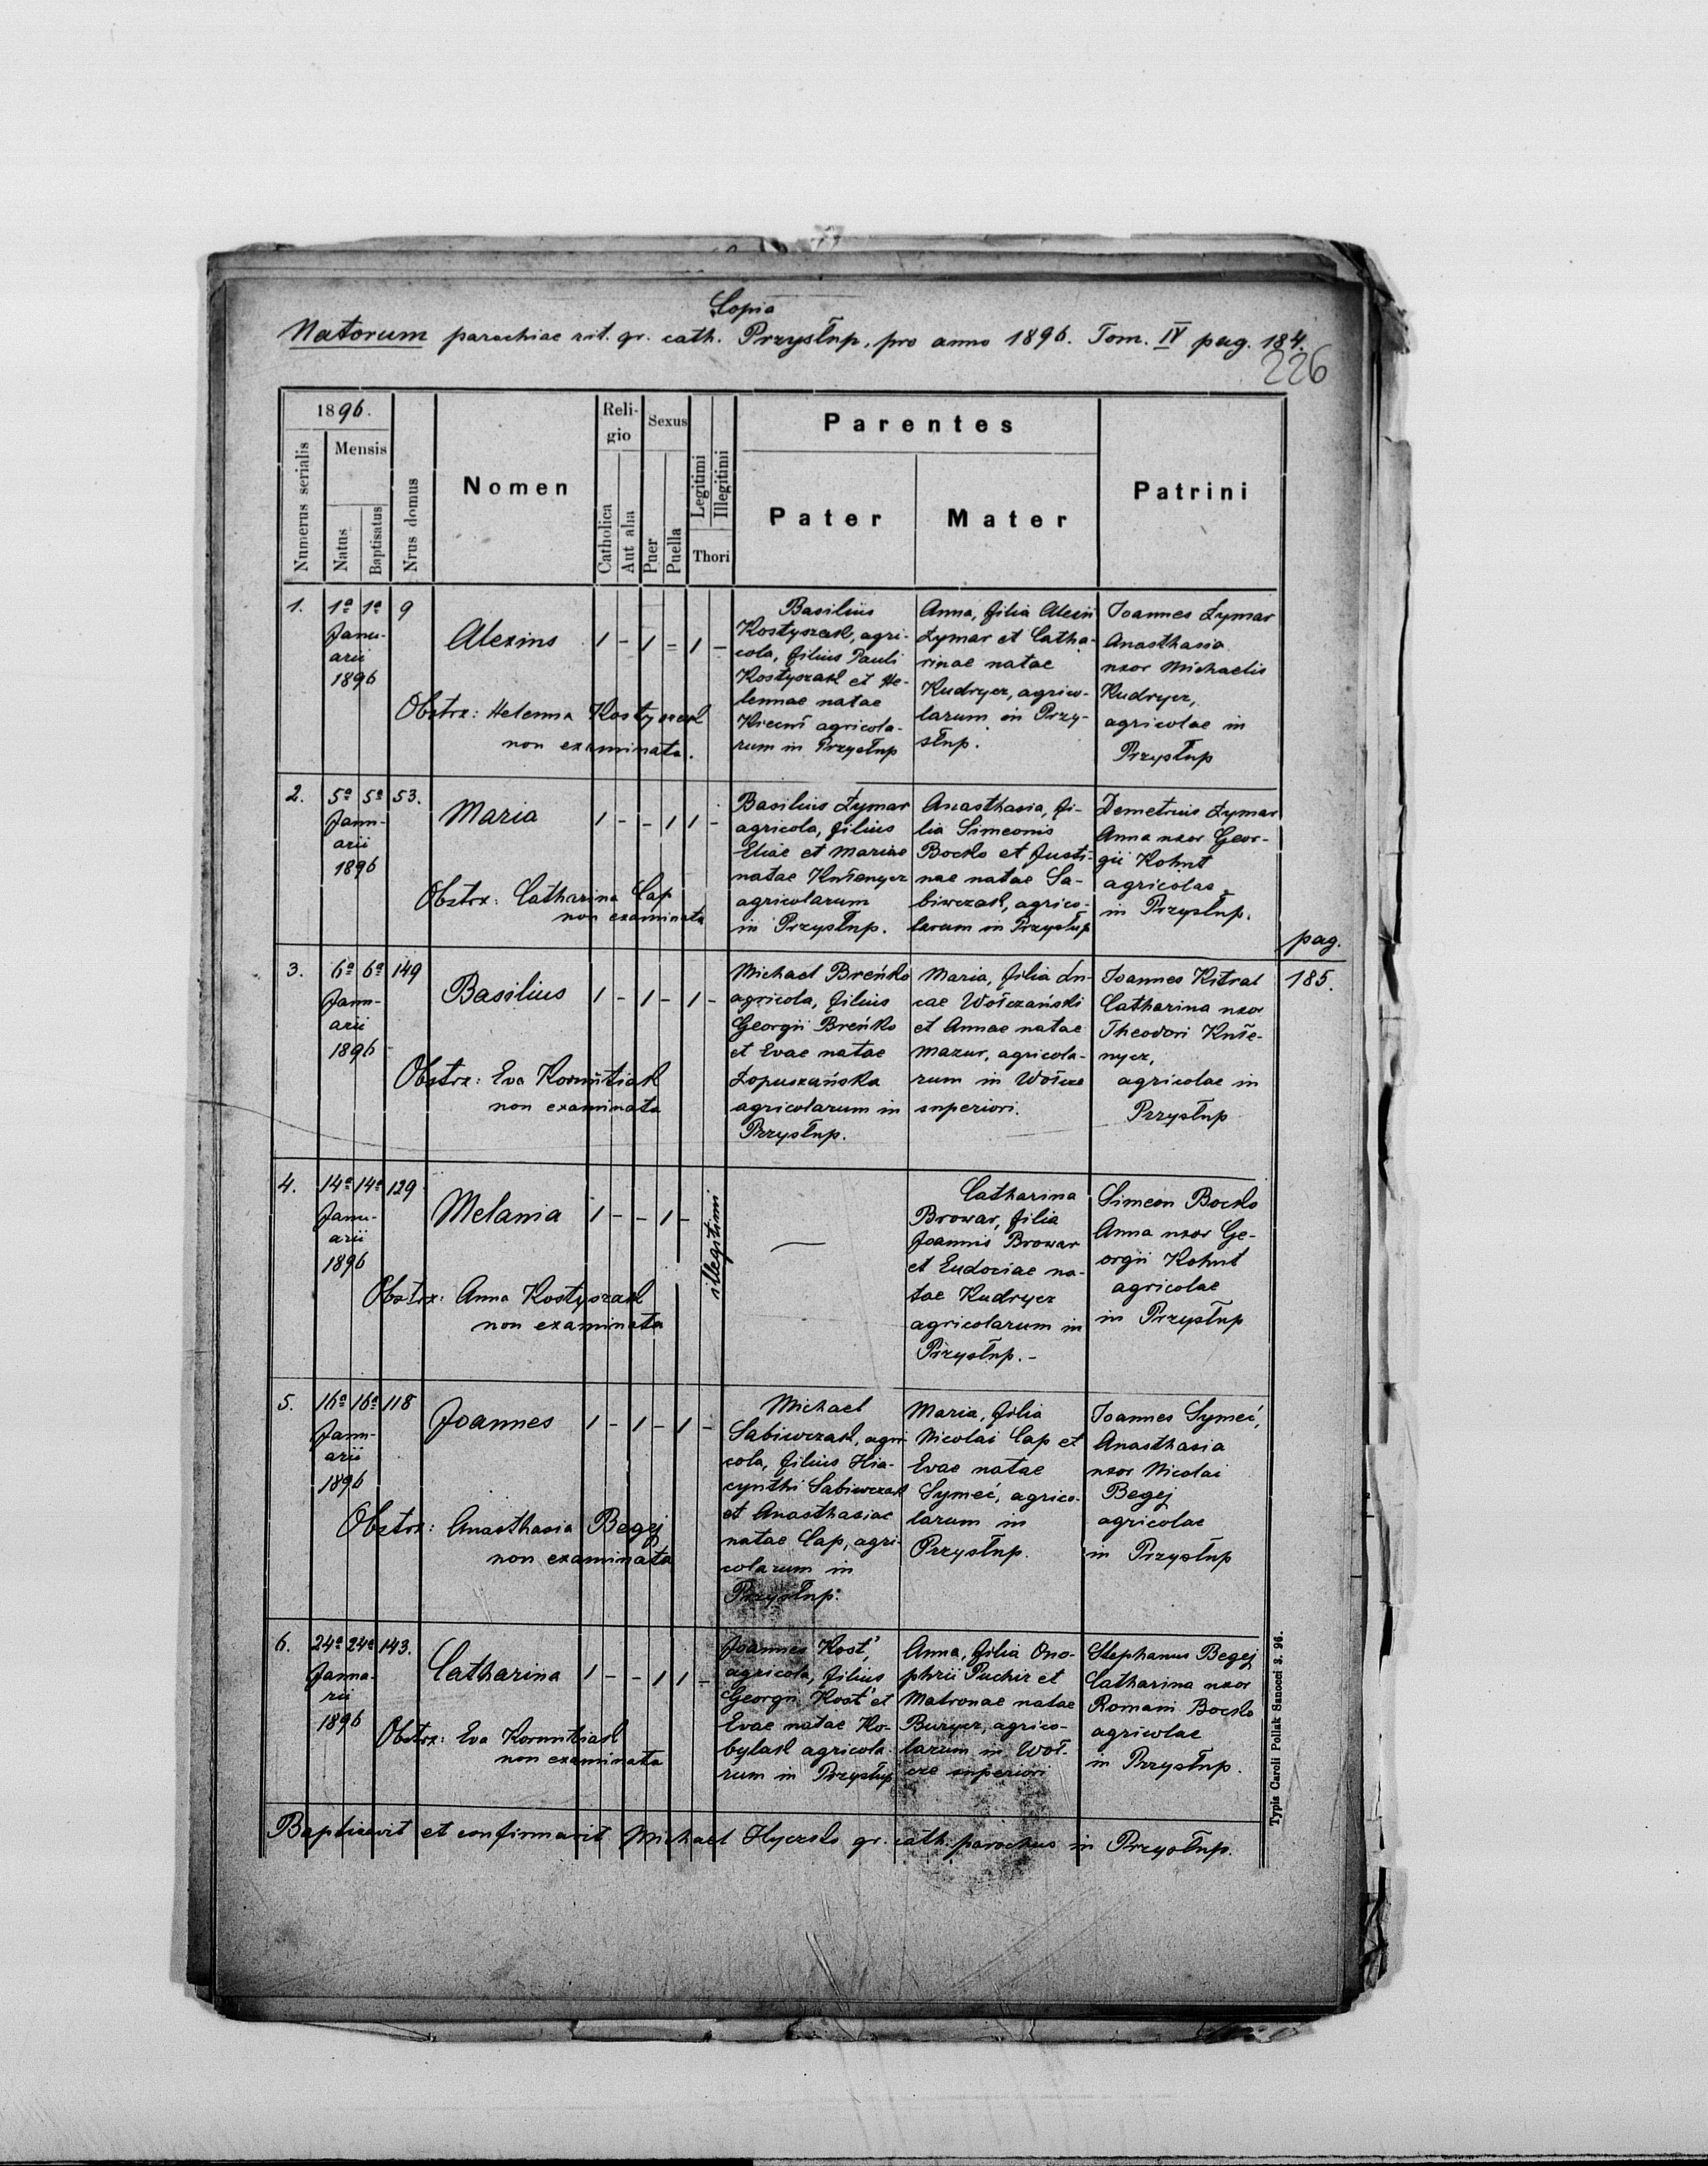 Copia
Natorum parochiae rit. gr. cath. Przysłup, pro anno 1896. Tom. IV pag. 184.
226
1896.
Numerus serialis
Mensis
Natus
Baptisatus
Nrus domus
Nomen
Reli-
gio
Catholica
Aut alia
Sexus
Puer
Puella
Legitimi
Illegitimi
Thori
Parentes
Pater
Mater
Patrini
1.
1a 1a 9
Janu-
arii
1896
Alexius
1 - 1 = 1 -
Obstrx: Helenna Kostyszak
non examinata.
Basilius
Kostyszak, agri-
cola, filius Pauli
Kostyszak et He-
lennae natae
agricola-
rum in Przysłup
Anna, filia Alexii
Łymar et Catha-
rinae natae
Kudrycz, agrico-
larum in Przy-
słup.
Joannes Łymar
Anasthasia
uxor Michaelis
Kudrycz,
agricolae in
Przysłup
2.
5a 5a 53.
Janu-
arii
1896
Maria
1 - - 1 1 -
Obstrx: Catharina Cap
non examinata
Basilius Łymar
agricola, filius
Eliae et Mariae
natae Kušenycz
agricolarum
in Przysłup.
Anasthasia, fi-
lia Simeonis
Bocko et Justi-
nae natae Sa-
biwczak, agrico-
larum in Przysłup
Demetrius Łymar
Anna uxor Geor-
gii Kohut
agricolae
in Przysłup.
pag.
185.
3.
6a 6a 149
Janu-
arii
1896
Basilius
1 - 1 - 1 -
Obstrx: Eva Kornutiak
non examinata
Michael Breńko
agricola, filius
Georgii Breńko
et Evae natae
Łopuszańska
agricolarum in
Przysłup.
Maria, filia Lu-
cae Wołczański
et Annae natae
Mazur, agricola-
rum in Wołcze
superiori.
Joannes Kitral
Catharina uxor
Theodori Kuše-
nycz,
agricolae in
Przysłup
4.
14a 14a 129
Janu-
arii
1896
Melania
1 - - 1 -
illegitimi
Obstrx: Anna Kostyszak
non examinata
—
Catharina
Browar, filia
Joannis Browar
et Eudociae na-
tae Kudrycz
agricolarum in
Przysłup. -
Simeon Bocko
Anna uxor Ge-
orgii Kohut
agricolae
in Przysłup
5.
16a 16a 118
Janu-
arii
1896
Joannes
1 - 1 - 1 -
Obstrx: Anasthasia Begej
non examinata
Michael
Sabiwczak, agri-
cola, filius Hia-
cynthi Sabiwczak
et Anasthasiae
natae Cap, agri-
colarum in
Przysłup.
Maria, filia
Nicolai Cap et
Evae natae
Symeć, agrico-
larum in
Przysłup.
Joannes Symeć,
Anasthasia
uxor Nicolai
Begej
agricolae
in Przysłup
6.
24a 24a 143.
Janua-
rii
1896
Catharina
1 - - 1 1 -
Obstrx: Eva Kornutiak
non examinata
Joannes Kost',
agricola, filius
Georgii Kost' et
Evae natae Ko-
bylak agricola-
rum in Przysłup
Anna, filia Ono-
phrii Puchir et
Matronae natae
Burycz, agrico-
larum in Woł-
cze superiori
Stephanus Begej
Catharina uxor
Romani Bocko
agricolae
in Przysłup.
Baptizavit et confirmavit Michael Hycsko gr. cath. parochus in Przysłup.
Typis Caroli Pollak Sanoci 3. 96.